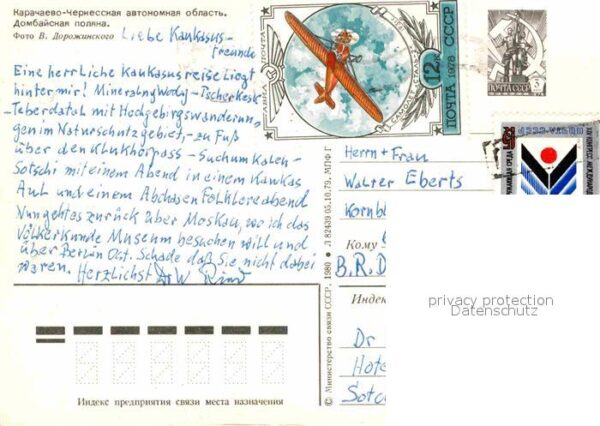 Карачаево-Черкесская автономная область.
Домбайская поляна.
Фото В. Дорожинского
Liebe Kaukasus-
freunde
Eine herrliche Kaukasusreise liegt
hinter mir! Mineralnywody - Tscherkesk
- Teberdatal mit Hochgebirgswanderun-
gen im Naturschutzgebiet, - zu Fuß
über den Klukhorpass - Suchum kalen -
Sotschi mit einem Abend in einem Kaukas
Aul und einem Abchasen Folkloreabend
Nun geht es zurück über Moskau, wo ich das
Völkerkunde Museum besuchen will und
über Berlin Ost. Schade daß Sie nicht dabei
waren. Herzlichst Dr W
АВИА ПОЧТА
12к
ПОЧТА СССР
1978
ПОЧТА СССР
Herrn + Frau
Walter Eberts
Kornb
Кому
B.R.D
Индек
Dr
Hote
Sotc
© Министерство связи СССР, 1980
Л 82439 05.10.79. МПФ Г
privacy protection
Datenschutz
Индекс предприятия связи места назначения